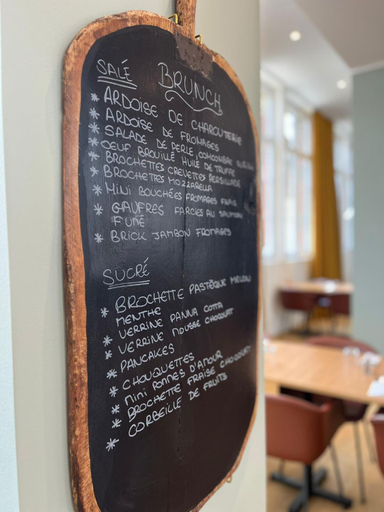 BRUNCH
SALÉ
* ARDOISE DE CHARCUTERIE
* ARDOISE DE FROMAGES
* SALADE DE PERLE, CONCOMBRE
* OEUF BROUILLÉ HUILE DE TRUFFE
* BROCHETTES CREVETTES PERSILLADE
* BROCHETTES MOZZARELLA
* MINI BOUCHÉES FROMAGES
* GAUFRES FARCIES AU SAUMON
FUMÉ
* BRICK JAMBON FROMAGES
SUCRÉ
* BROCHETTE PASTÈQUE MELON
MENTHE
* VERRINE PANNA COTTA
* VERRINE MOUSSE CHOCOLAT
* PANCAKES
* CHOUQUETTES
* MINI POMMES D'AMOUR
* BROCHETTE FRAISE CHOCOLAT
* CORBEILLE DE FRUITS